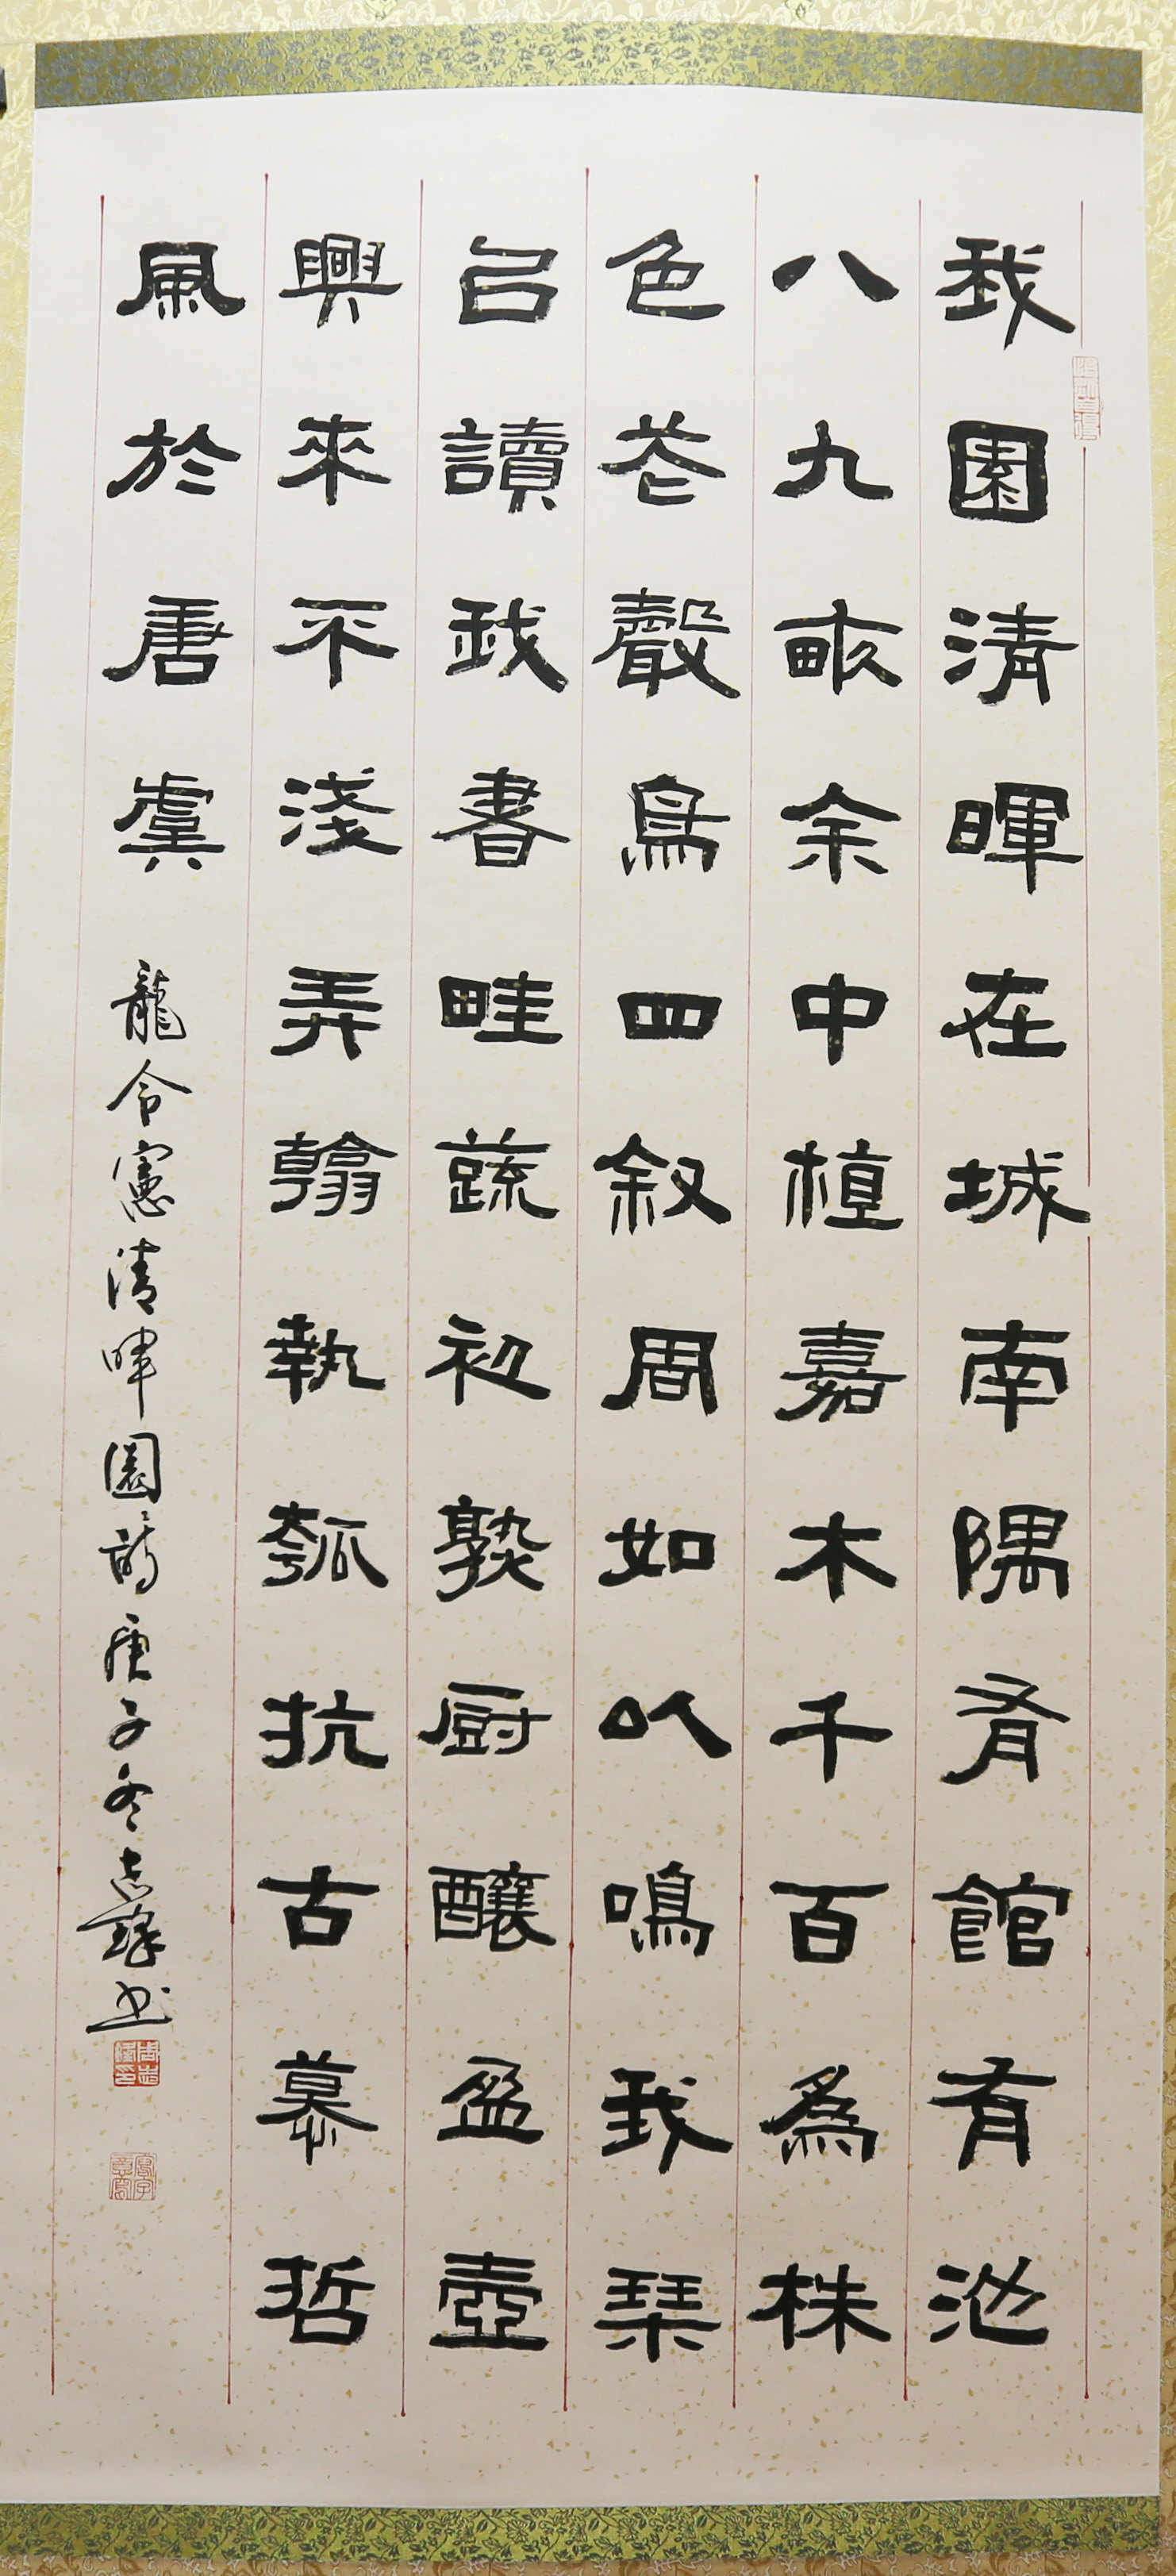 我園清暉在城南隅有館有池
八九畝余中植嘉木千百為株
色花聲鳥四敘周如以鳴我琴
以讀我書畦蔬初熟厨釀盈壺
興來不淺弄翰執瓠抗古慕哲
風於唐虞
龍令憲清暉園詩庚子冬志鋒书